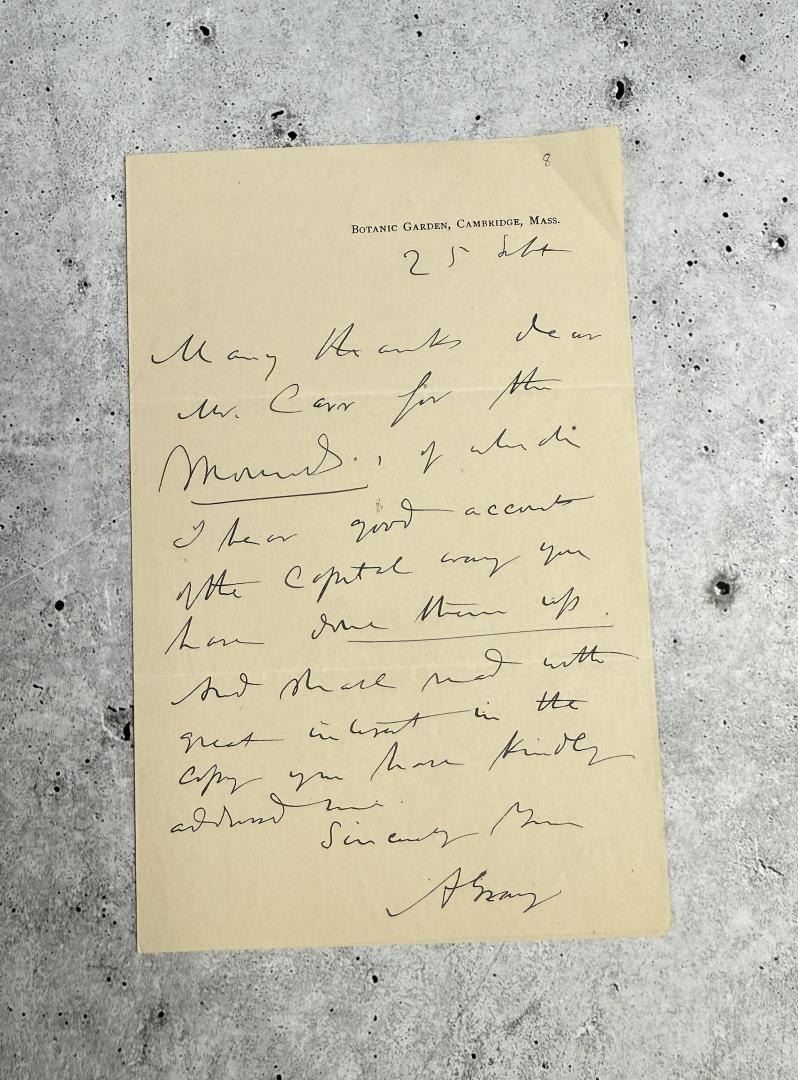 8
BOTANIC GARDEN, CAMBRIDGE, MASS.
25 Sept
Many thanks dear
Mr. Carr for the
Mounds., of which
I hear good accounts
of the capital way you
have done them up.
And shall read with
great interest in the
copy you have kindly
addressed me.
Sincerely Yours
A Gray